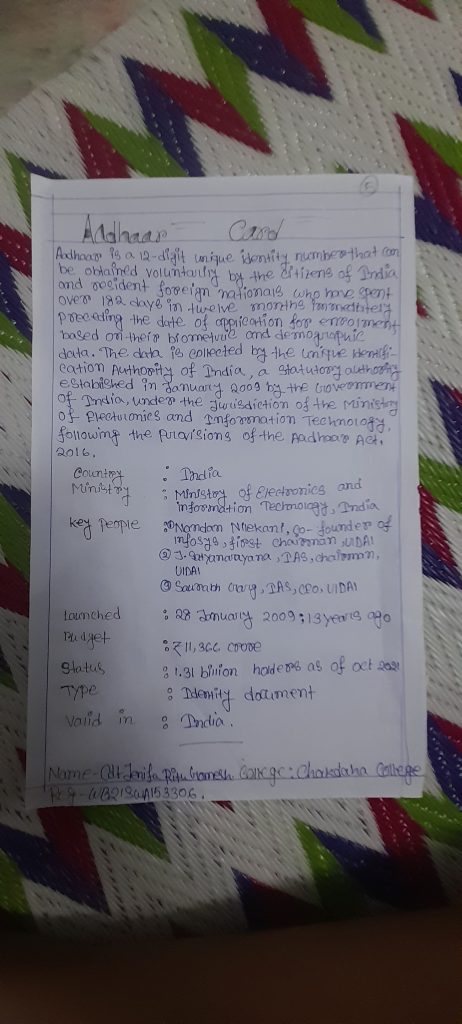 5
Aadhaar Card
Aadhaar is a 12-digit unique identity number that can
be obtained voluntarily by the citizens of India
and resident foreign nationals who have spent
over 182 days in twelve months immediately
preceding the date of application for enrolment,
based on their biometric and demographic
data. The data is collected by the unique identifi-
cation Authority of India, a statutory authority
established in January 2009 by the Government
of India, under the jurisdiction of the Ministry
of Electronics and Information Technology,
following the provisions of the Aadhaar Act,
2016.
Country : India
Ministry : Ministry of Electronics and
information Technology, India
key people : ① Nandan Nilekani, co-founder of
infosys, first chairman, UIDAI
② J. Satyanarayana, IAS, chairman,
UIDAI
③ Saurabh Garg, IAS, CEO, UIDAI
Launched : 28 January 2009; 13 years ago
Budget : ₹11,366 crore
Status : 1.31 billion holders as of Oct 2021
Type : Identity document
Valid in : India.
Name - Cdt Jenifa Ritu Gomesh College: Chakdaha College
Reg - WB21SWA153306.